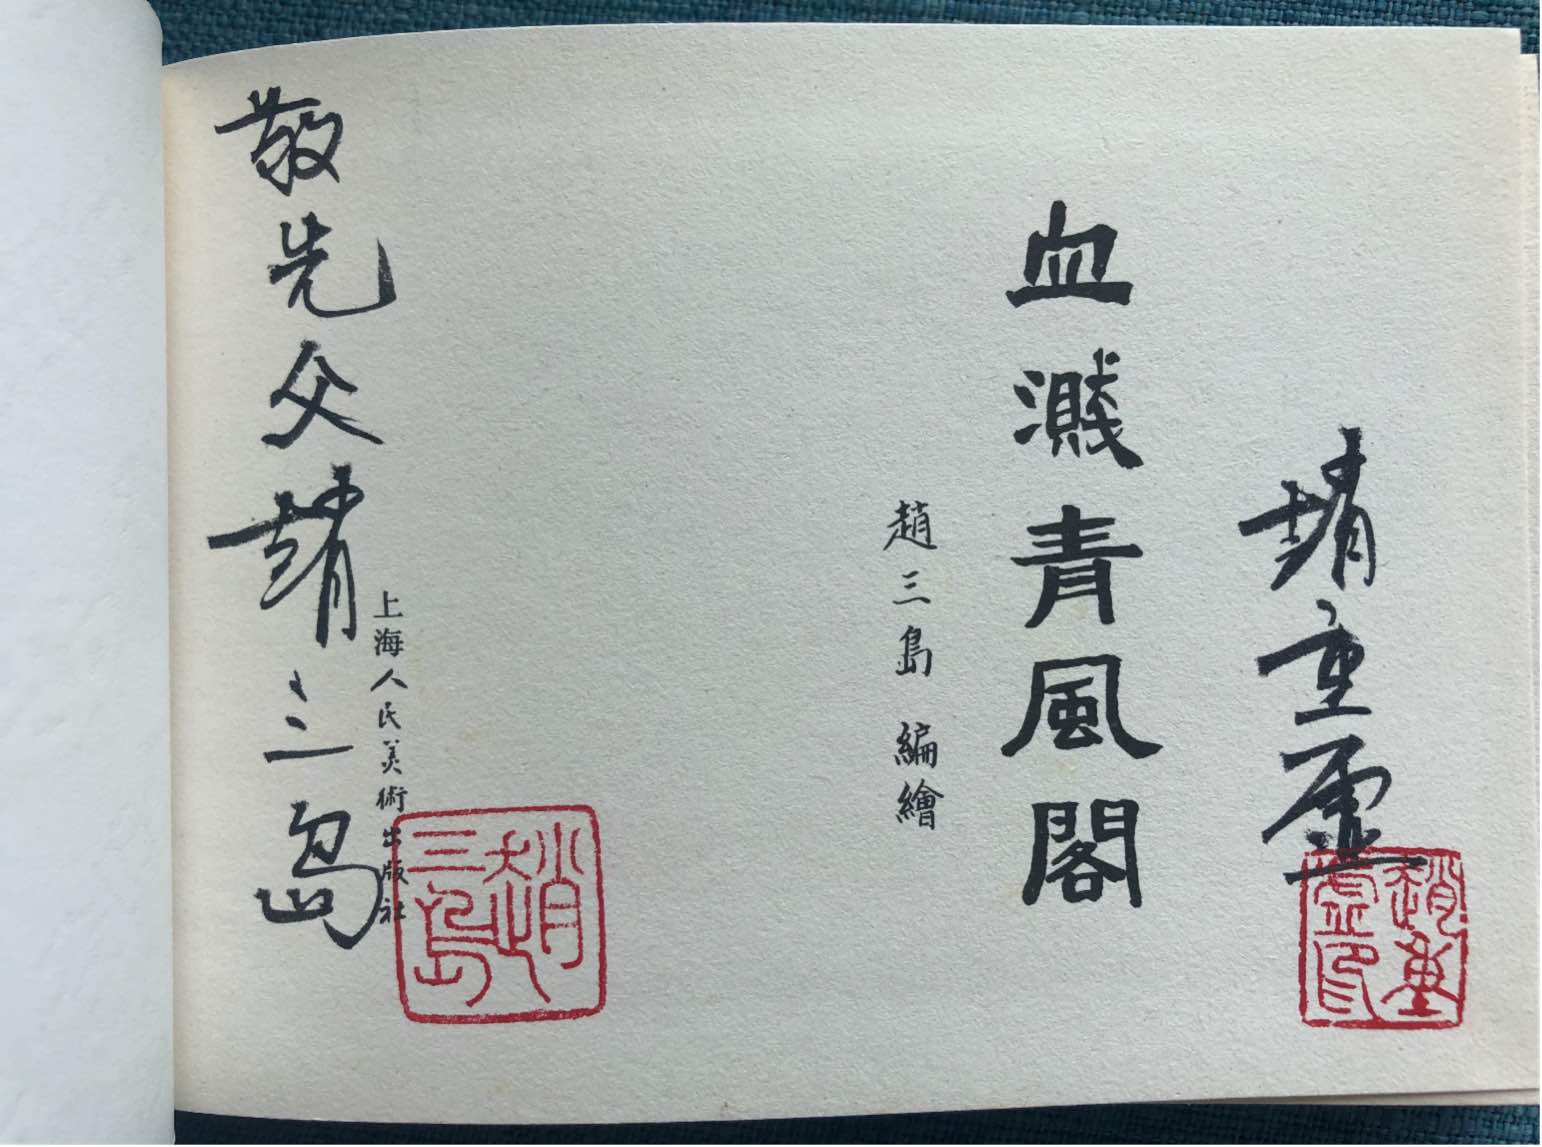 趙重虚
趙重虚印
血濺青風閣
趙三島 編繪
上海人民美術出版社
趙三島
敬先父趙三島